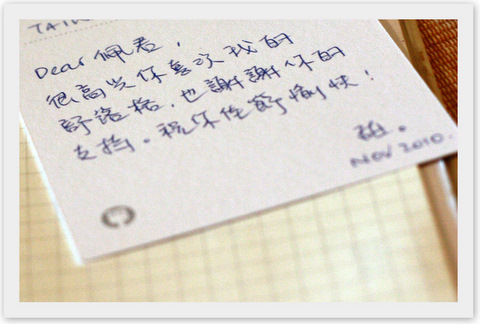 Dear 佩君,
很高兴你喜欢我的
部落格,也謝謝你的
支持。祝你佳節愉快!
NOV 2010.